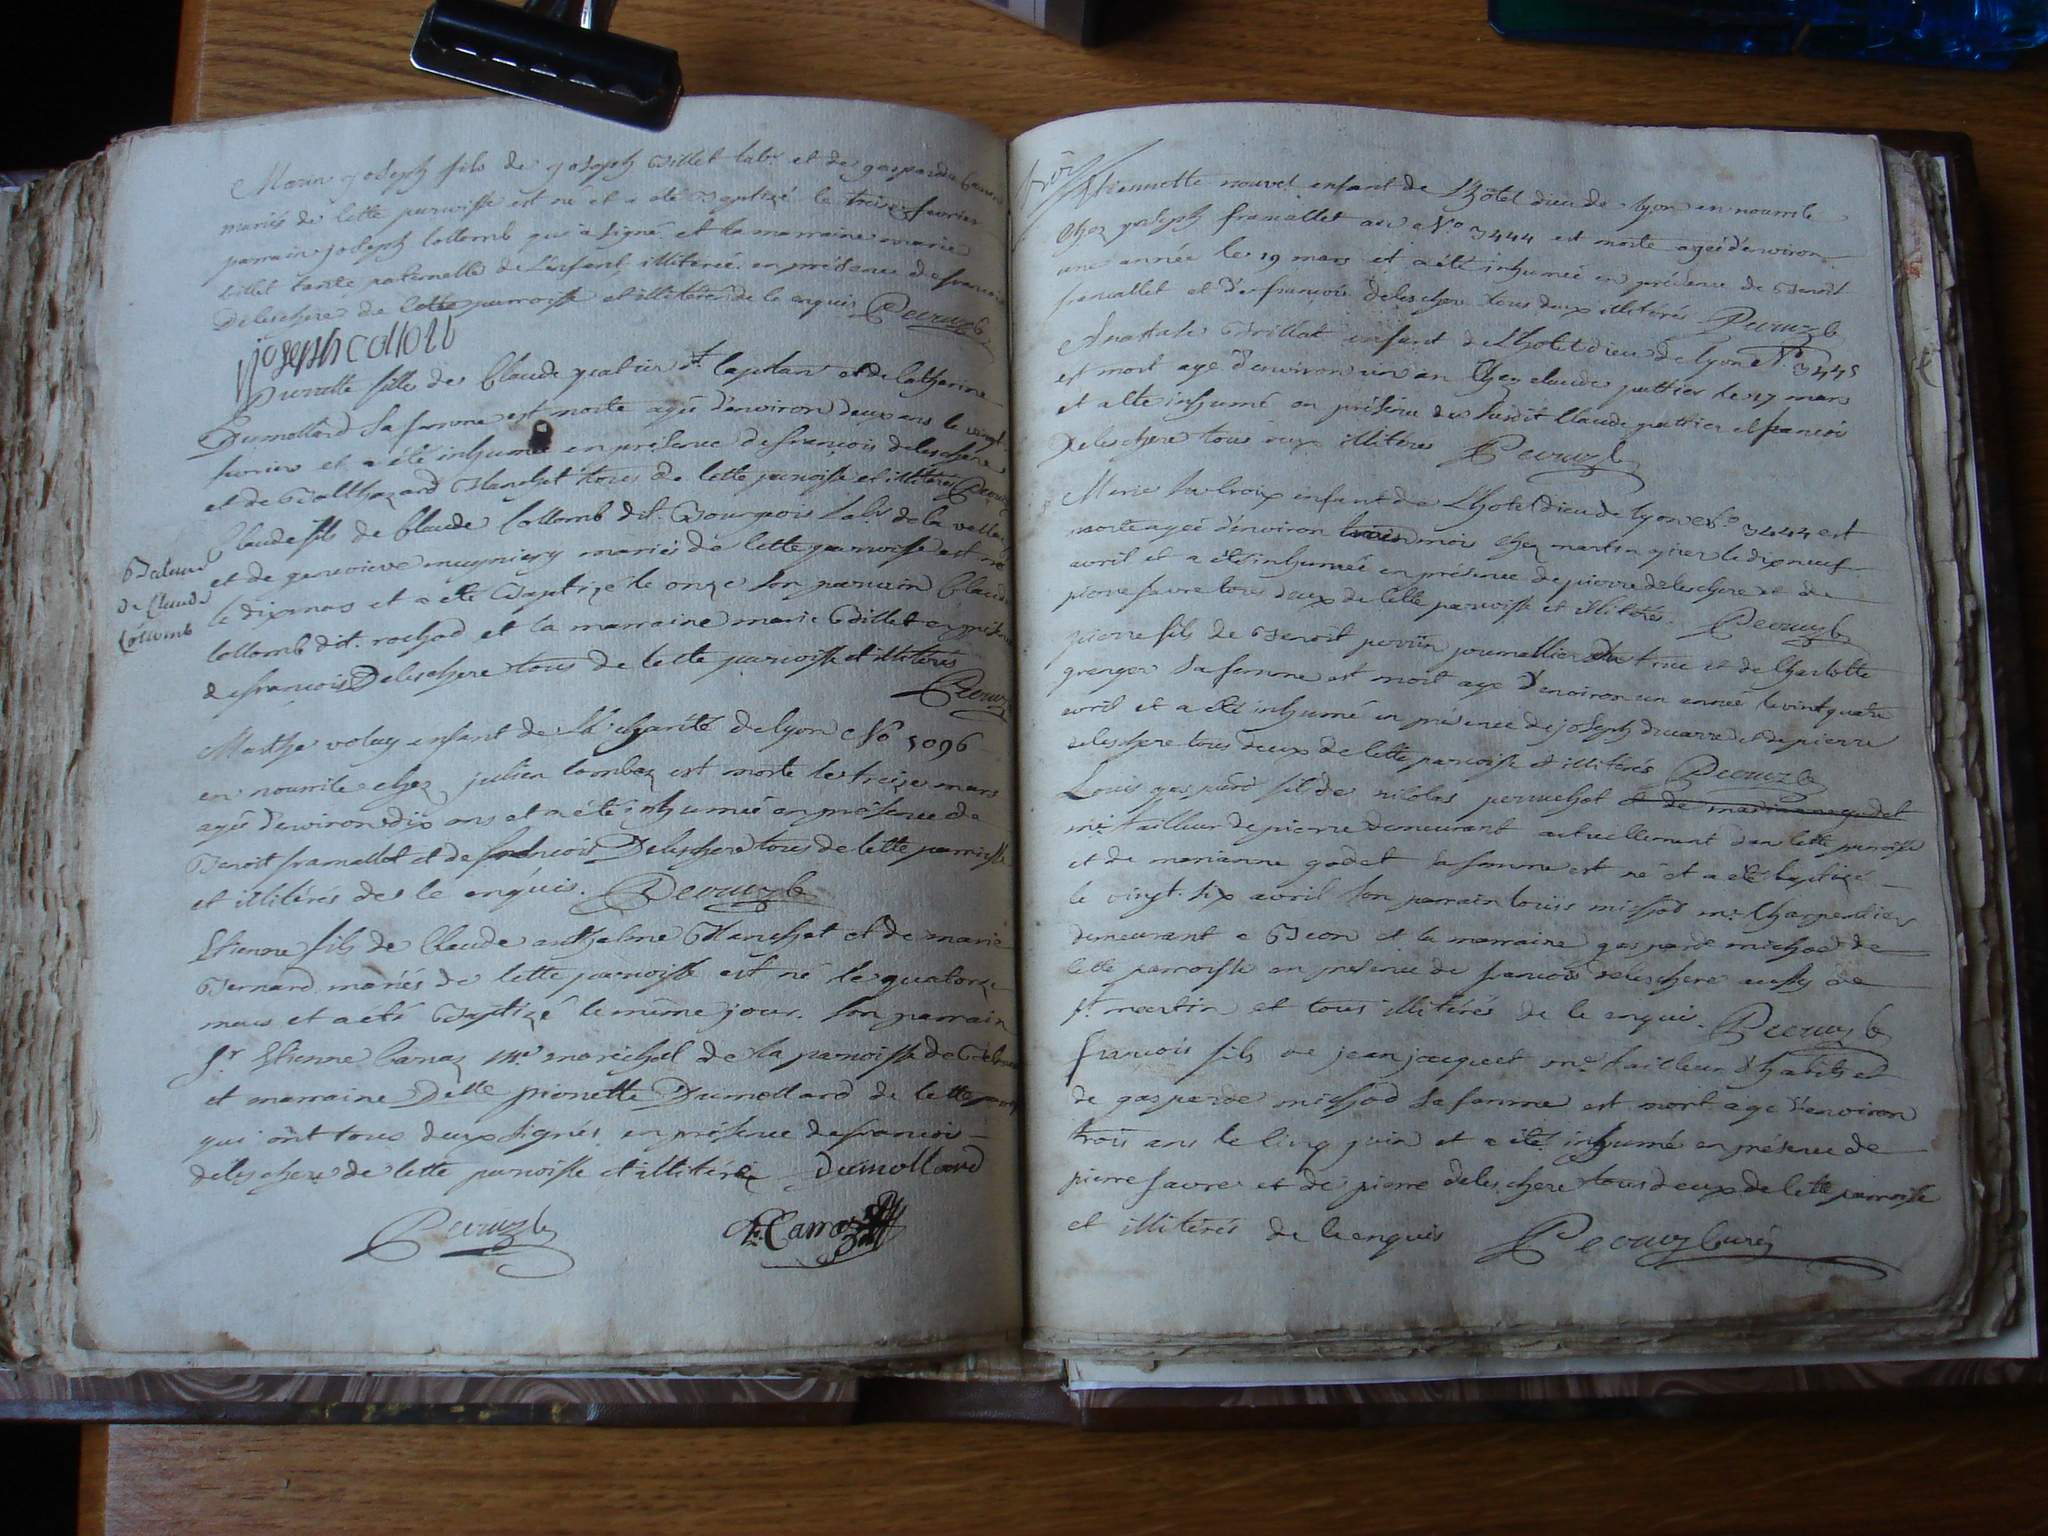 Marin joseph fils de joseph Billet labr et de gasparde
mariés de cette parroisse est né et a été Baptizé le treize fevrier
parrain joseph Collomb qui a signé et la marraine marie
billet tante paternelle de l'enfant illiterée en présence de francois
Deleschere de cette parroisse et illiterés de ce enquis Peronz C
joseph collon
fille de Claude et de Catherine
Dumollard sa femme est morte agée d'environ deux ans le vingt
fevrier et a été inhumée en présence de françois deleschere
et de Balthazard Blanchet tous de cette parroisse et illiteres
Bateme
de Claude
Collomb
Claude fils de Claude Collomb dit Bourgeois labr de la
et de genevieve mugnier mariés de cette parroisse est né
le dix mars et a été Baptizé le onze son parrain Claude
Collomb dit rochad et la marraine marie Billet en présence
de francois Deleschere tous de cette parroisse et illiterés
Marthe enfant de la charité de lyon No 5096
en nourrite chez julien est morte le treize mars
agée d'environ dix ans et a été inhumée en présence de
Benoit framallet et de francois Deleschere tous de cette parroisse
et illiterés de ce enquis.
Etienne fils de Claude anthelme Blanchet et de marie
Bernard mariés de cette parroisse est né le quatorze
mars et a été Baptizé le même jour. son parrain
Sr Etienne Carraz me maréchal de la parroisse de
et marraine Delle pierrette Dumollard de cette parroisse
qui ont tous deux signés en présence de francois
deleschere de cette parroisse et illitéré Dumollard
E. Carraz
Etiennette nouvel enfant de l'hôtel dieu de lyon en nourrite
chez joseph framallet au No 3444 est morte agée d'environ
une année le 19 mars et a été inhumée en présence de Benoit
framallet et de françois Deleschere tous deux illitérés
Anastase Brillat enfant de l'hotel dieu de lyon No 3445
est mort agé d'environ un an chez claude puthier le 27 mars
et a été inhumé en présence du susdit Claude puthier et francois
Deleschere tous deux illitérés
Marie la croix enfant de l'hotel dieu de lyon No 3444 est
morte agée d'environ mois chez martin le dix neuf
avril et a été inhumée en présence de pierre deleschere et de
pierre favre tous deux de cette parroisse et illitérés.
pierre fils de Benoit perrin journallier et de Charlotte
granger sa femme est mort agé d'environ un année le vint quatre
avril et a été inhumé en présence de joseph ducarre et de pierre
deleschere tous deux de cette parroisse et illitérés
Louis gaspard fils de nicolas perruchot et de marianne godet
me tailleur de pierre demeurant actuellement dans cette parroisse
et de marianne godet sa femme est né et a été baptizé
le vingt six avril son parrain louis michod me charpentier
demeurant a Beon et la marraine gasparde michod de
cette parroisse en présence de francois deleschere aussy de
St martin et tous illitérés de ce enquis.
francois fils de jean jacquet me tailleur d'habits et
de gasparde michod sa femme est mort agé d'environ
trois ans le cinq juin et a été inhumé en présence de
pierre favre et de pierre deleschere tous deux de cette parroisse
et illitérés de ce enquis curé